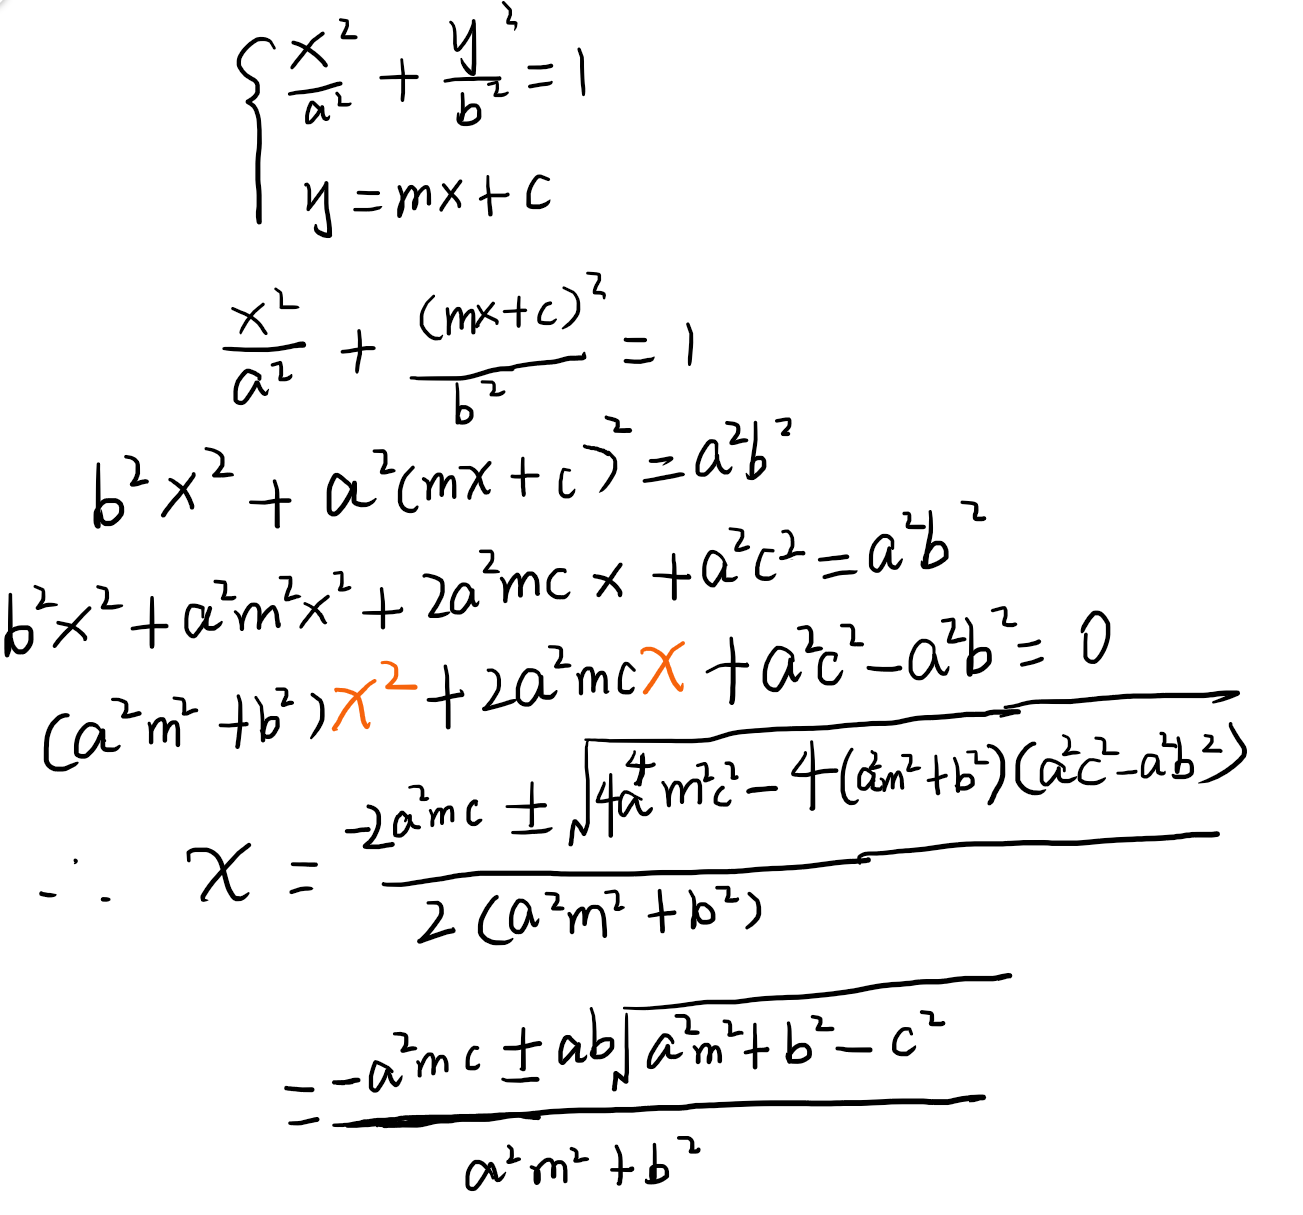 { x²/a² + y²/b² = 1
y = mx + c
x²/a² + (mx+c)²/b² = 1
b²x² + a²(mx+c)² = a²b²
b²x² + a²m²x² + 2a²mcx + a²c² = a²b²
(a²m² + b²)x² + 2a²mcx + a²c² - a²b² = 0
∴ x = (-2a²mc ± √(4a⁴m²c² - 4(a²m²+b²)(a²c²-a²b²))) / 2(a²m² + b²)
= (-a²mc ± ab√(a²m² + b² - c²)) / (a²m² + b²)